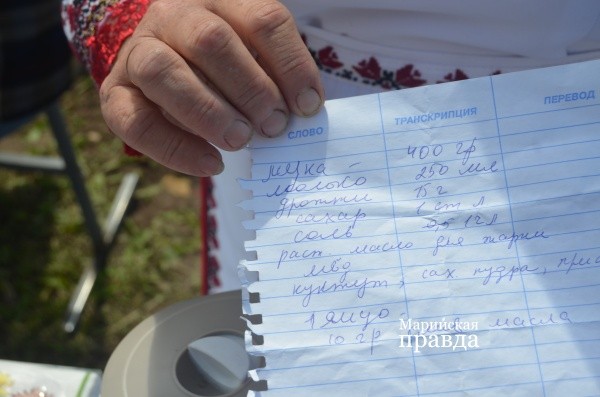 СЛОВО ТРАНСКРИПЦИЯ ПЕРЕВОД
мука - 400 гр
молоко 250 мл
дрожжи 15 г
сахар 1 ст л
соль
раст. масло для жарки
кунжут, сах пудра,
1 яйцо
10 гр масла
Марийская
правда